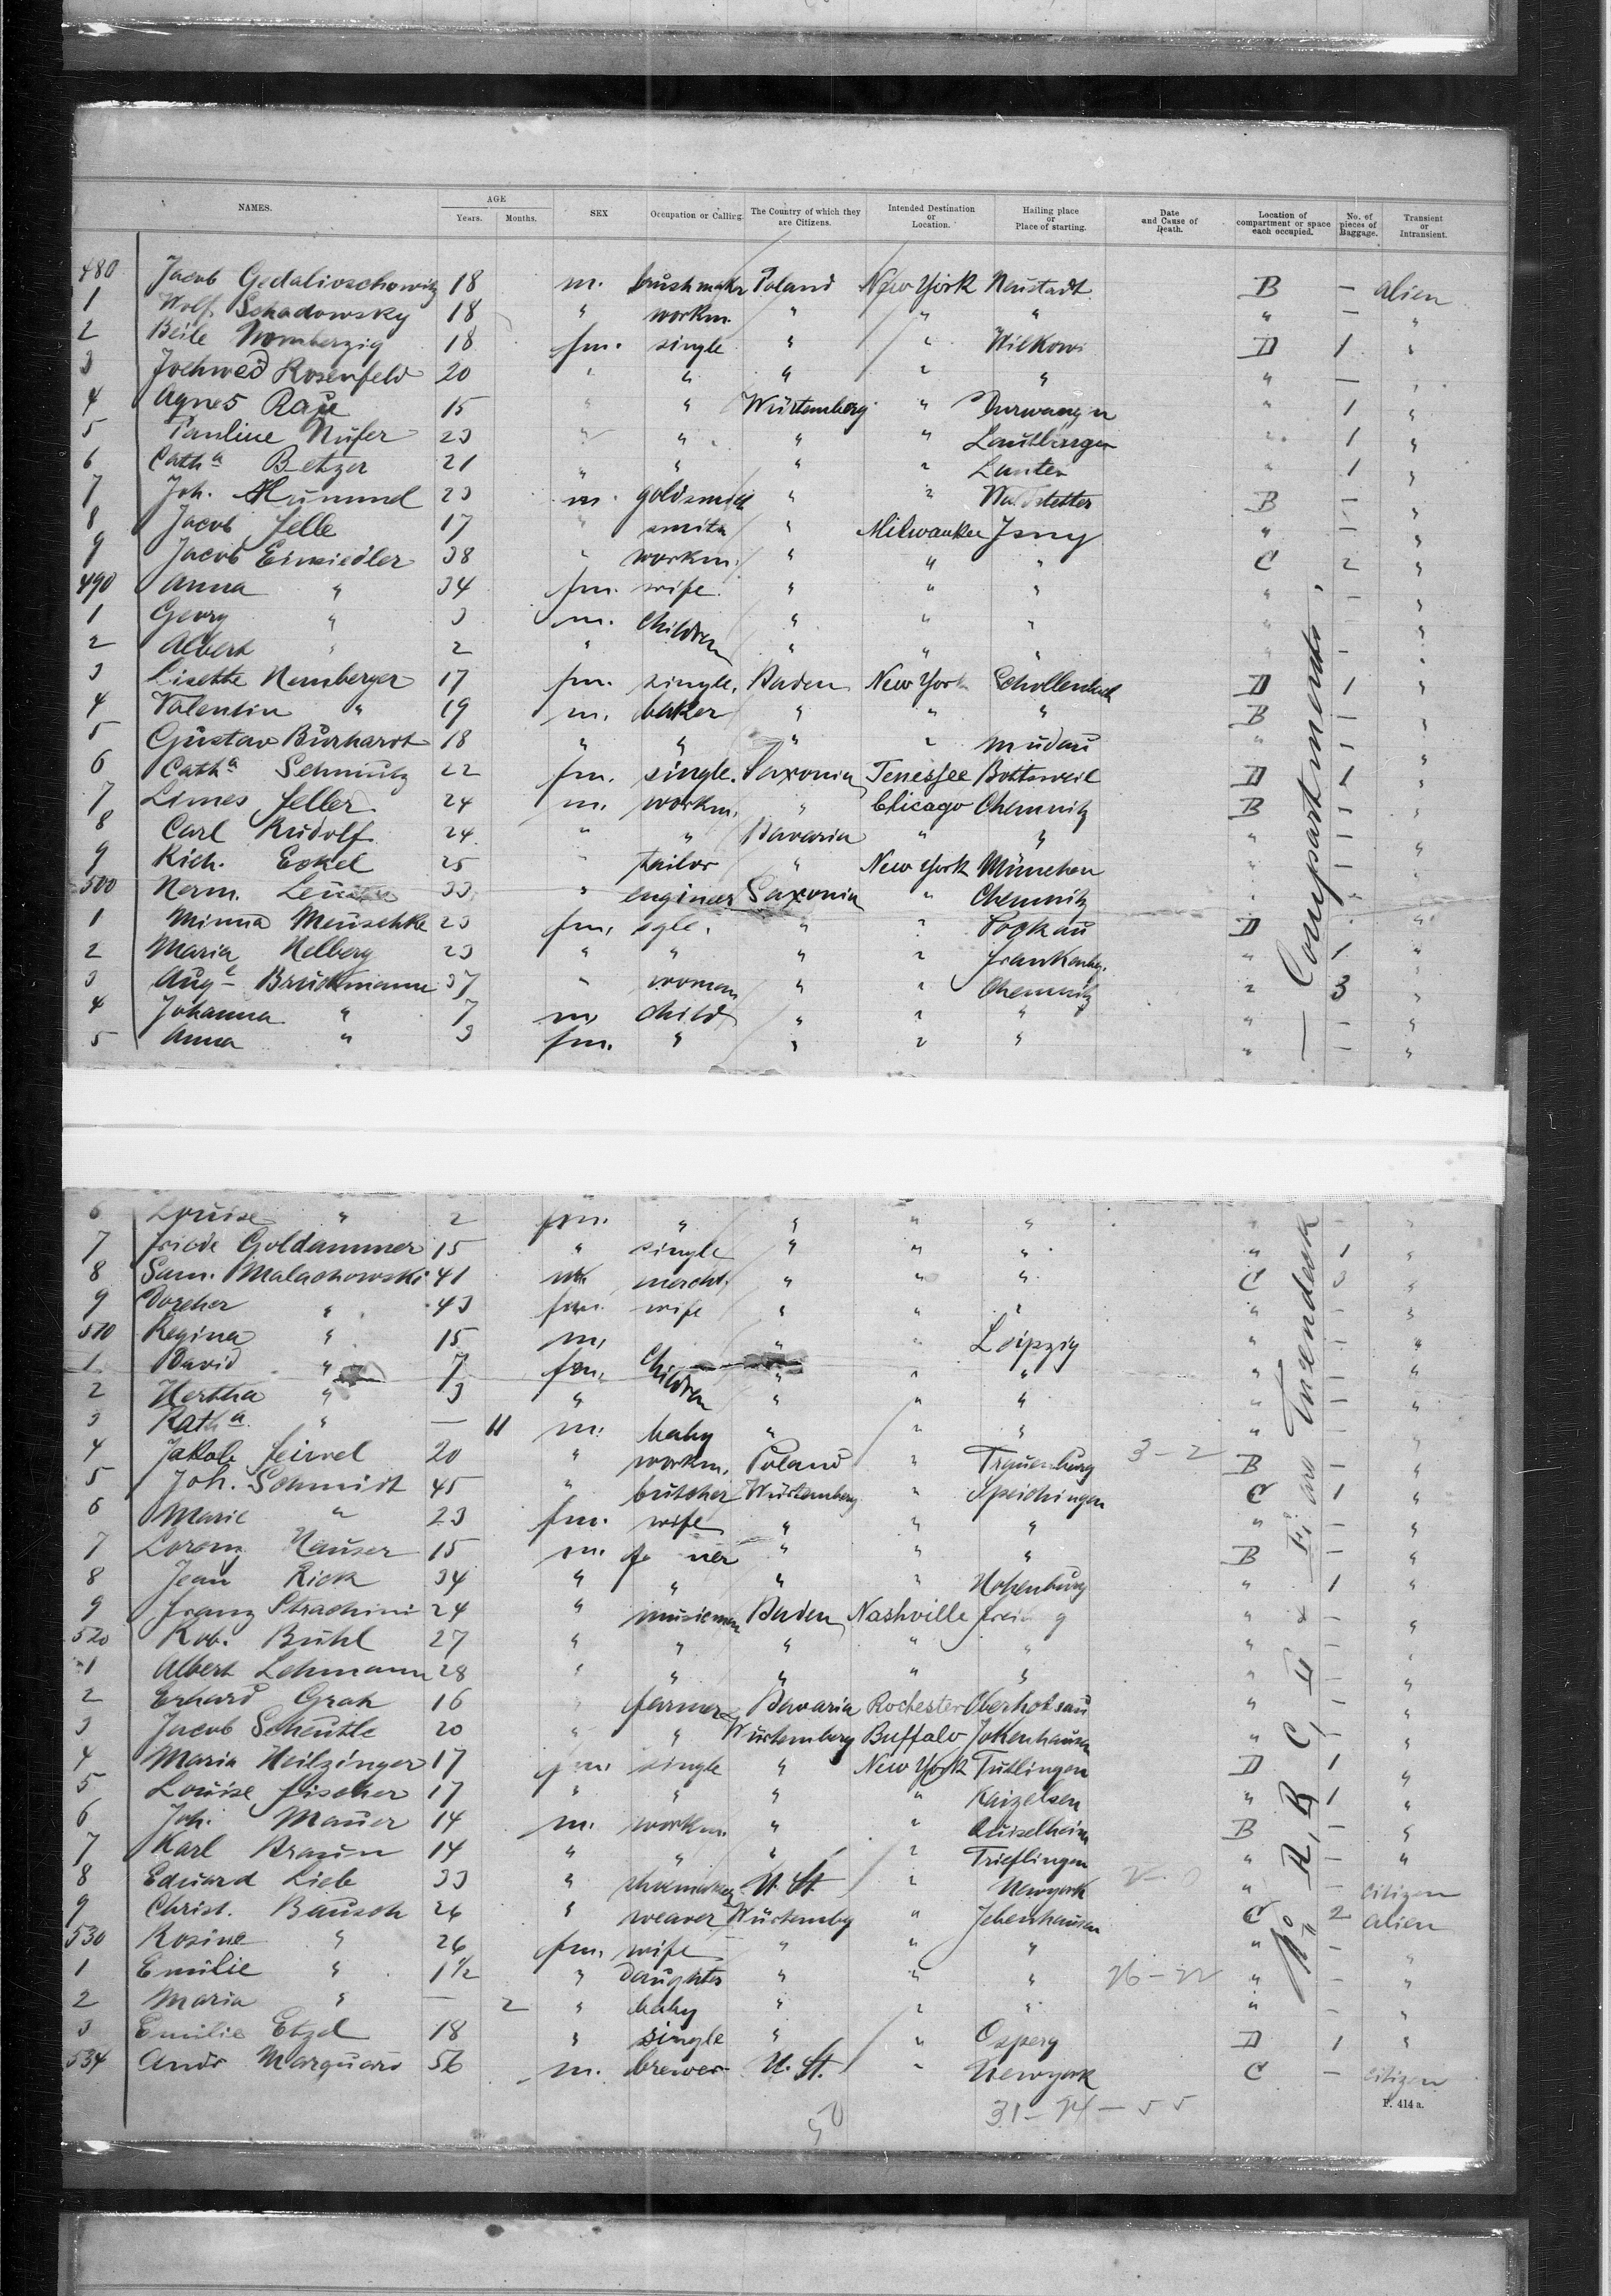 NAMES. AGE Years. Months. SEX Occupation or Calling. The Country of which they are Citizens. Intended Destination or Location. Hailing place or Place of starting. Date and Cause of Death. Location of compartment or space each occupied. No. of pieces of Baggage. Transient or Intransient.
480 Jacob Gedalioschowitz 18 m. brushmakr Poland New York Neustadt B — alien
1 Wolf Schadowsky 18 " workm. " " " " — "
2 Beile 18 fm. single " " Wilkowi D 1 "
3 Jochwed Rosenfeld 20 " " " " " " — "
4 Agnes Raue 15 " " Würtemberg " " 1 "
5 Pauline Nufer 23 " " " " " 1 "
6 Catha Betzer 21 " " " " " 1 "
7 Joh. 23 m. goldsmith " " B — "
8 Jacob Felle 17 " smith " Milwaukee Isny " — "
9 Jacob Einsiedler 38 " workm. " " " C 2 "
490 Anna " 34 fm. wife " " " " — "
1 Georg " 3 m. Children " " " " "
2 Albert " 2 " " " " " — "
3 Lisette Nemberger 17 fm. single. Baden New York Schollenbach D 1 "
4 Valentin " 19 m. baker " " " B — "
5 Gustav Burhardt 18 " " " " Mudau " — "
6 Catha Schmutz 22 fm. single. Saxonia Tenessee Bottweil D 1 "
7 Limes Feller 24 m. workm. " Chicago Chemnitz B — "
8 Carl Rudolf 24 " " Bavaria " " " — "
9 Rich. Eskel 25 " tailor " New York München " — "
500 Herm. 33 " engineer Saxonia " Chemnitz " "
1 Minna Meuschke 23 fm. sgle. " " Pockau D "
2 Maria Helberg 23 " " " " Frankenbg. " 1 "
3 Auge Bruckmann 37 " woman " " Chemnitz " 3 "
4 Johanna " 7 m. child " " " " — "
5 Anna " 3 fm. " " " " " — "
6 Louise " 2 fm. " " " " " — "
7 Friede Goldammer 15 " single " " " " 1 "
8 Sam. Malachowski 41 m. mercht. " " " C 3 "
9 Dorcher " 43 fm. wife " " " " — "
510 Regina " 15 m. " " Leipzig " — "
1 David " 7 fm. Children " " " " — "
2 Hertha " 3 " " " " " — "
3 Katha " — 11 m. baby " " " " — "
4 Jakob Feiwel 20 " workm. Poland " Trauenburg 3-2 B — "
5 Joh. Schmidt 45 " butcher Würtemberg " Speichingen C 1 "
6 Marie " 23 fm. wife " " " " — "
7 Lorenz Hauser 15 m. " " " B — "
8 Jean Rick 34 " " " " Hohenburg " 1 "
9 Franz Strachini 24 " musicman Baden Nashville " — "
520 Rob. Buhl 27 " " " " " " — "
1 Albert Lehmann 28 " " " " " " — "
2 Erhard Grah 16 " farmer Bavaria Rochester Oberhotsau " — "
3 Jacob Scheufle 20 " " Würtemberg Buffalo Jokenhausen " — "
4 Maria Heilzinger 17 fm. single " New York Tutlingen D 1 "
5 Louise Fischer 17 " " " " Kaizelsen " 1 "
6 Joh. Mauer 14 m. workm. " " Quiselheim B — "
7 Karl Braun 14 " " " " Trieflingen " — "
8 Eduard Lieb 33 " shoemaker U. St. " Newyork " — citizen
9 Christ. Bausch 26 " weaver Würtembg " Jebenhausen C 2 alien
530 Rosine " 26 fm. wife " " " " — "
1 Emilie " 1½ " daughter " " " " — "
2 Maria " — 2 " baby " " " " — "
3 Emilie Etzel 18 " single " " Osperg D 1 "
534 Andr Marquard 56 m. brewer U. St. " Newyork C — citizen
F. 414 a.
No A, B, C, D & E are Tweendeck — Compartments.